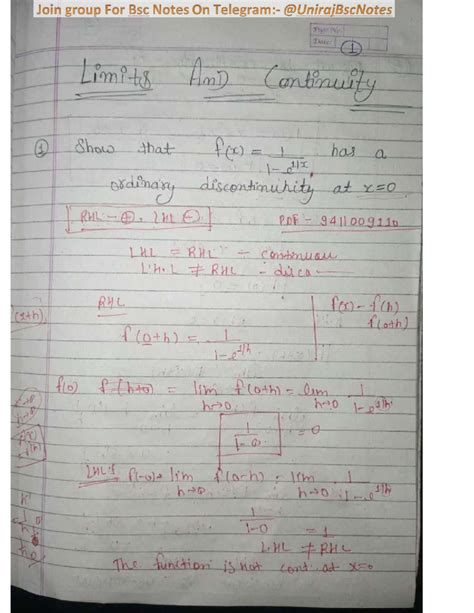 Join group For Bsc Notes On Telegram:- @UnirajBscNotes
Page No.
Date
1
Limits And Continuity
① Show that f(x) = 1/(1-e^(1/x)) has a
ordinary discontinuity at x=0.
[RHL - ⊕, LHL ⊖]
PDF - 9411009110
LHL = RHL - continuou
L.H.L ≠ RHL - disco
RHL
f(x) - f(h)
f(0+h)
(x+h)
f(0+h) = 1/(1-e^(1/h))
f(0) f(h+0) = lim h→0 f(0+h) = lim h→0 1/(1-e^(1/h))
= 0
LHL
lim h→0 f(0-h) = lim h→0
1/(1-0) = 1
LHL ≠ RHL
The function is not cont. at x=0